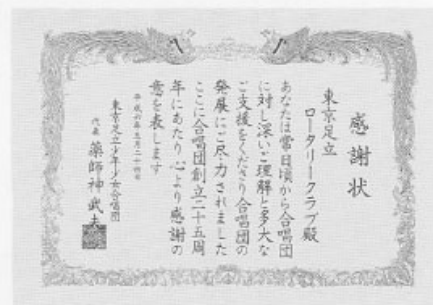 感謝状
東京足立
ロータリークラブ殿
あなたは常日頃から合唱団
に対し深いご理解と多大な
ご支援をくださり合唱団の
発展にご尽力されました
ここに合唱団創立二十五周
年にあたり心より感謝の
意を表します
平成六年五月二十四日
東京足立少年少女合唱団
代表 薬師神武夫